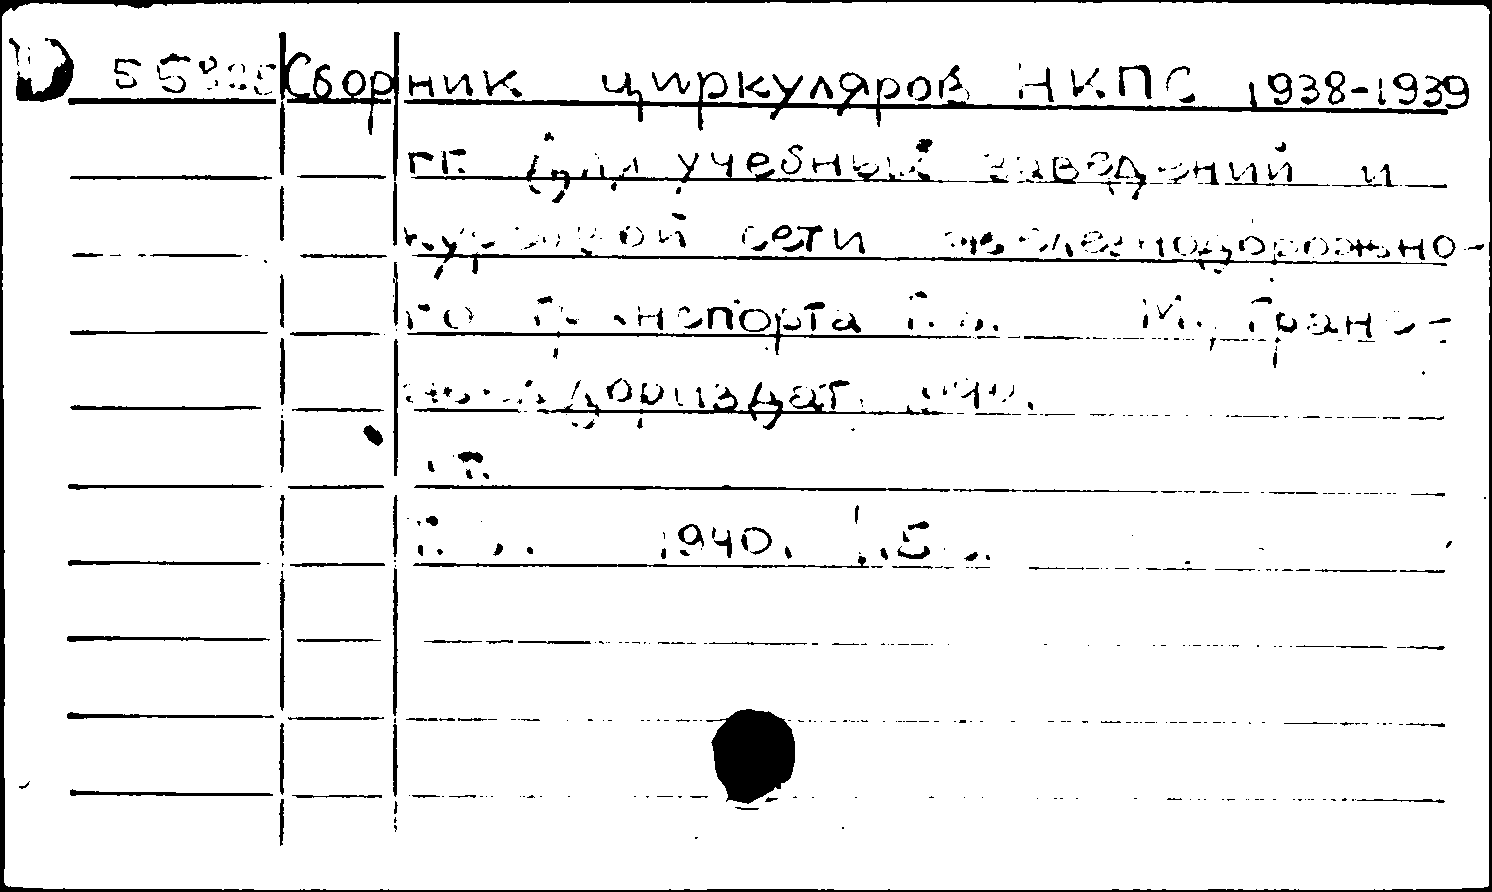 Сборник циркуляров НКПС 1938-1939
гг. (для учебных заведений и
курсовой сети железнодорожно-
го транспорта М., Транс-
желдориздат, 1940.
т.
1940.